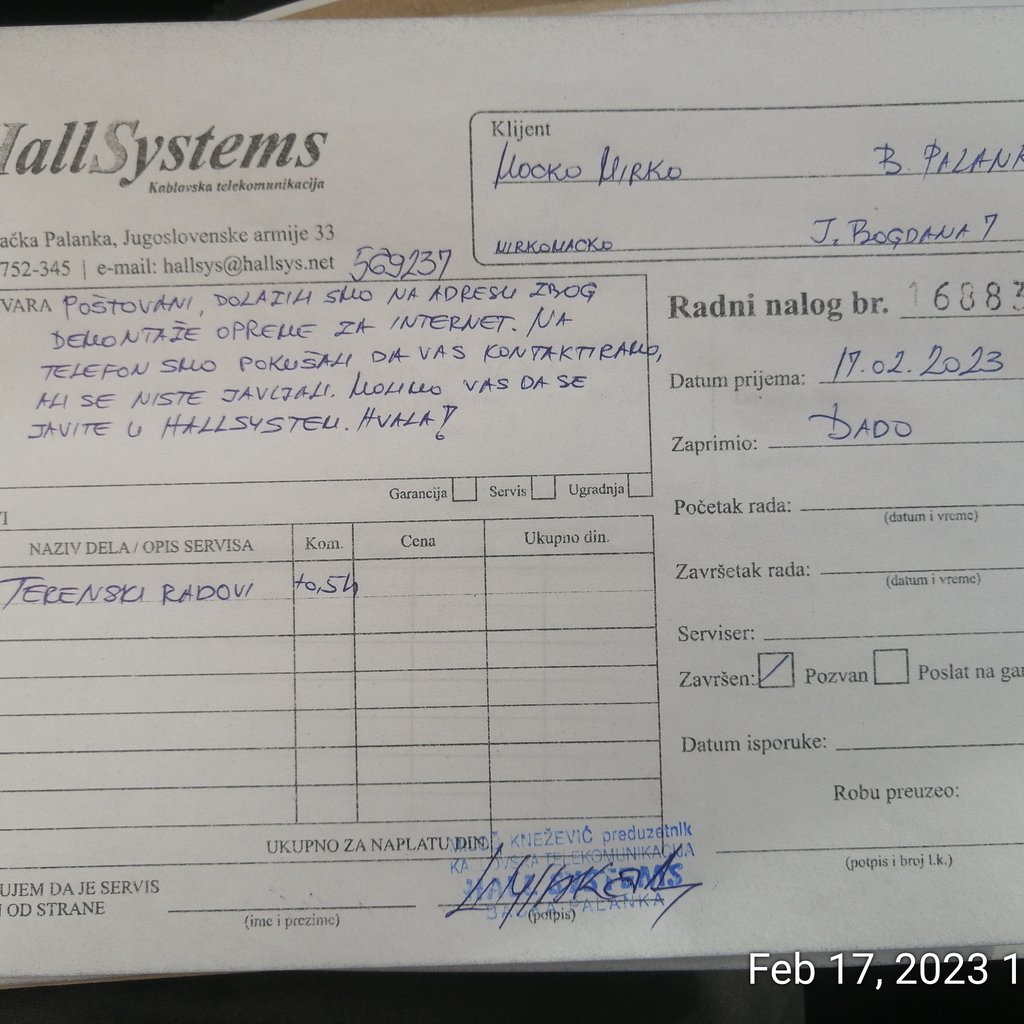 HallSystems
Kablovska telekomunikacija
ačka Palanka, Jugoslovenske armije 33
752-345 | e-mail: hallsys@hallsys.net 569237
Klijent
MOCKO MIRKO B. PALANK
MIRKOMACKO J. BOGDANA 7
VARA POŠTOVANI, DOLAZILI SMO NA ADRESU ZBOG
DEMONTAŽE OPREME ZA INTERNET. NA
TELEFON SMO POKUŠALI DA VAS KONTAKTIRAMO,
ALI SE NISTE JAVLJALI. MOLIMO VAS DA SE
JAVITE U HALLSYSTEM. HVALA!
Garancija Servis Ugradnja
NAZIV DELA / OPIS SERVISA Kom. Cena Ukupno din.
TERENSKI RADOVI 0,5h
UKUPNO ZA NAPLATU DIN.
UJEM DA JE SERVIS
OD STRANE
(ime i prezime) (potpis)
KNEŽEVIĆ preduzetnik
TELEKOMUNIKACIJA
HALL SYSTEMS
BAČKA PALANKA
Radni nalog br. 16883
Datum prijema: 17.02.2023
Zaprimio: DADO
Početak rada:
(datum i vreme)
Završetak rada:
(datum i vreme)
Serviser:
Završen: Pozvan Poslat na gar
Datum isporuke:
Robu preuzeo:
(potpis i broj l.k.)
Feb 17, 2023 1